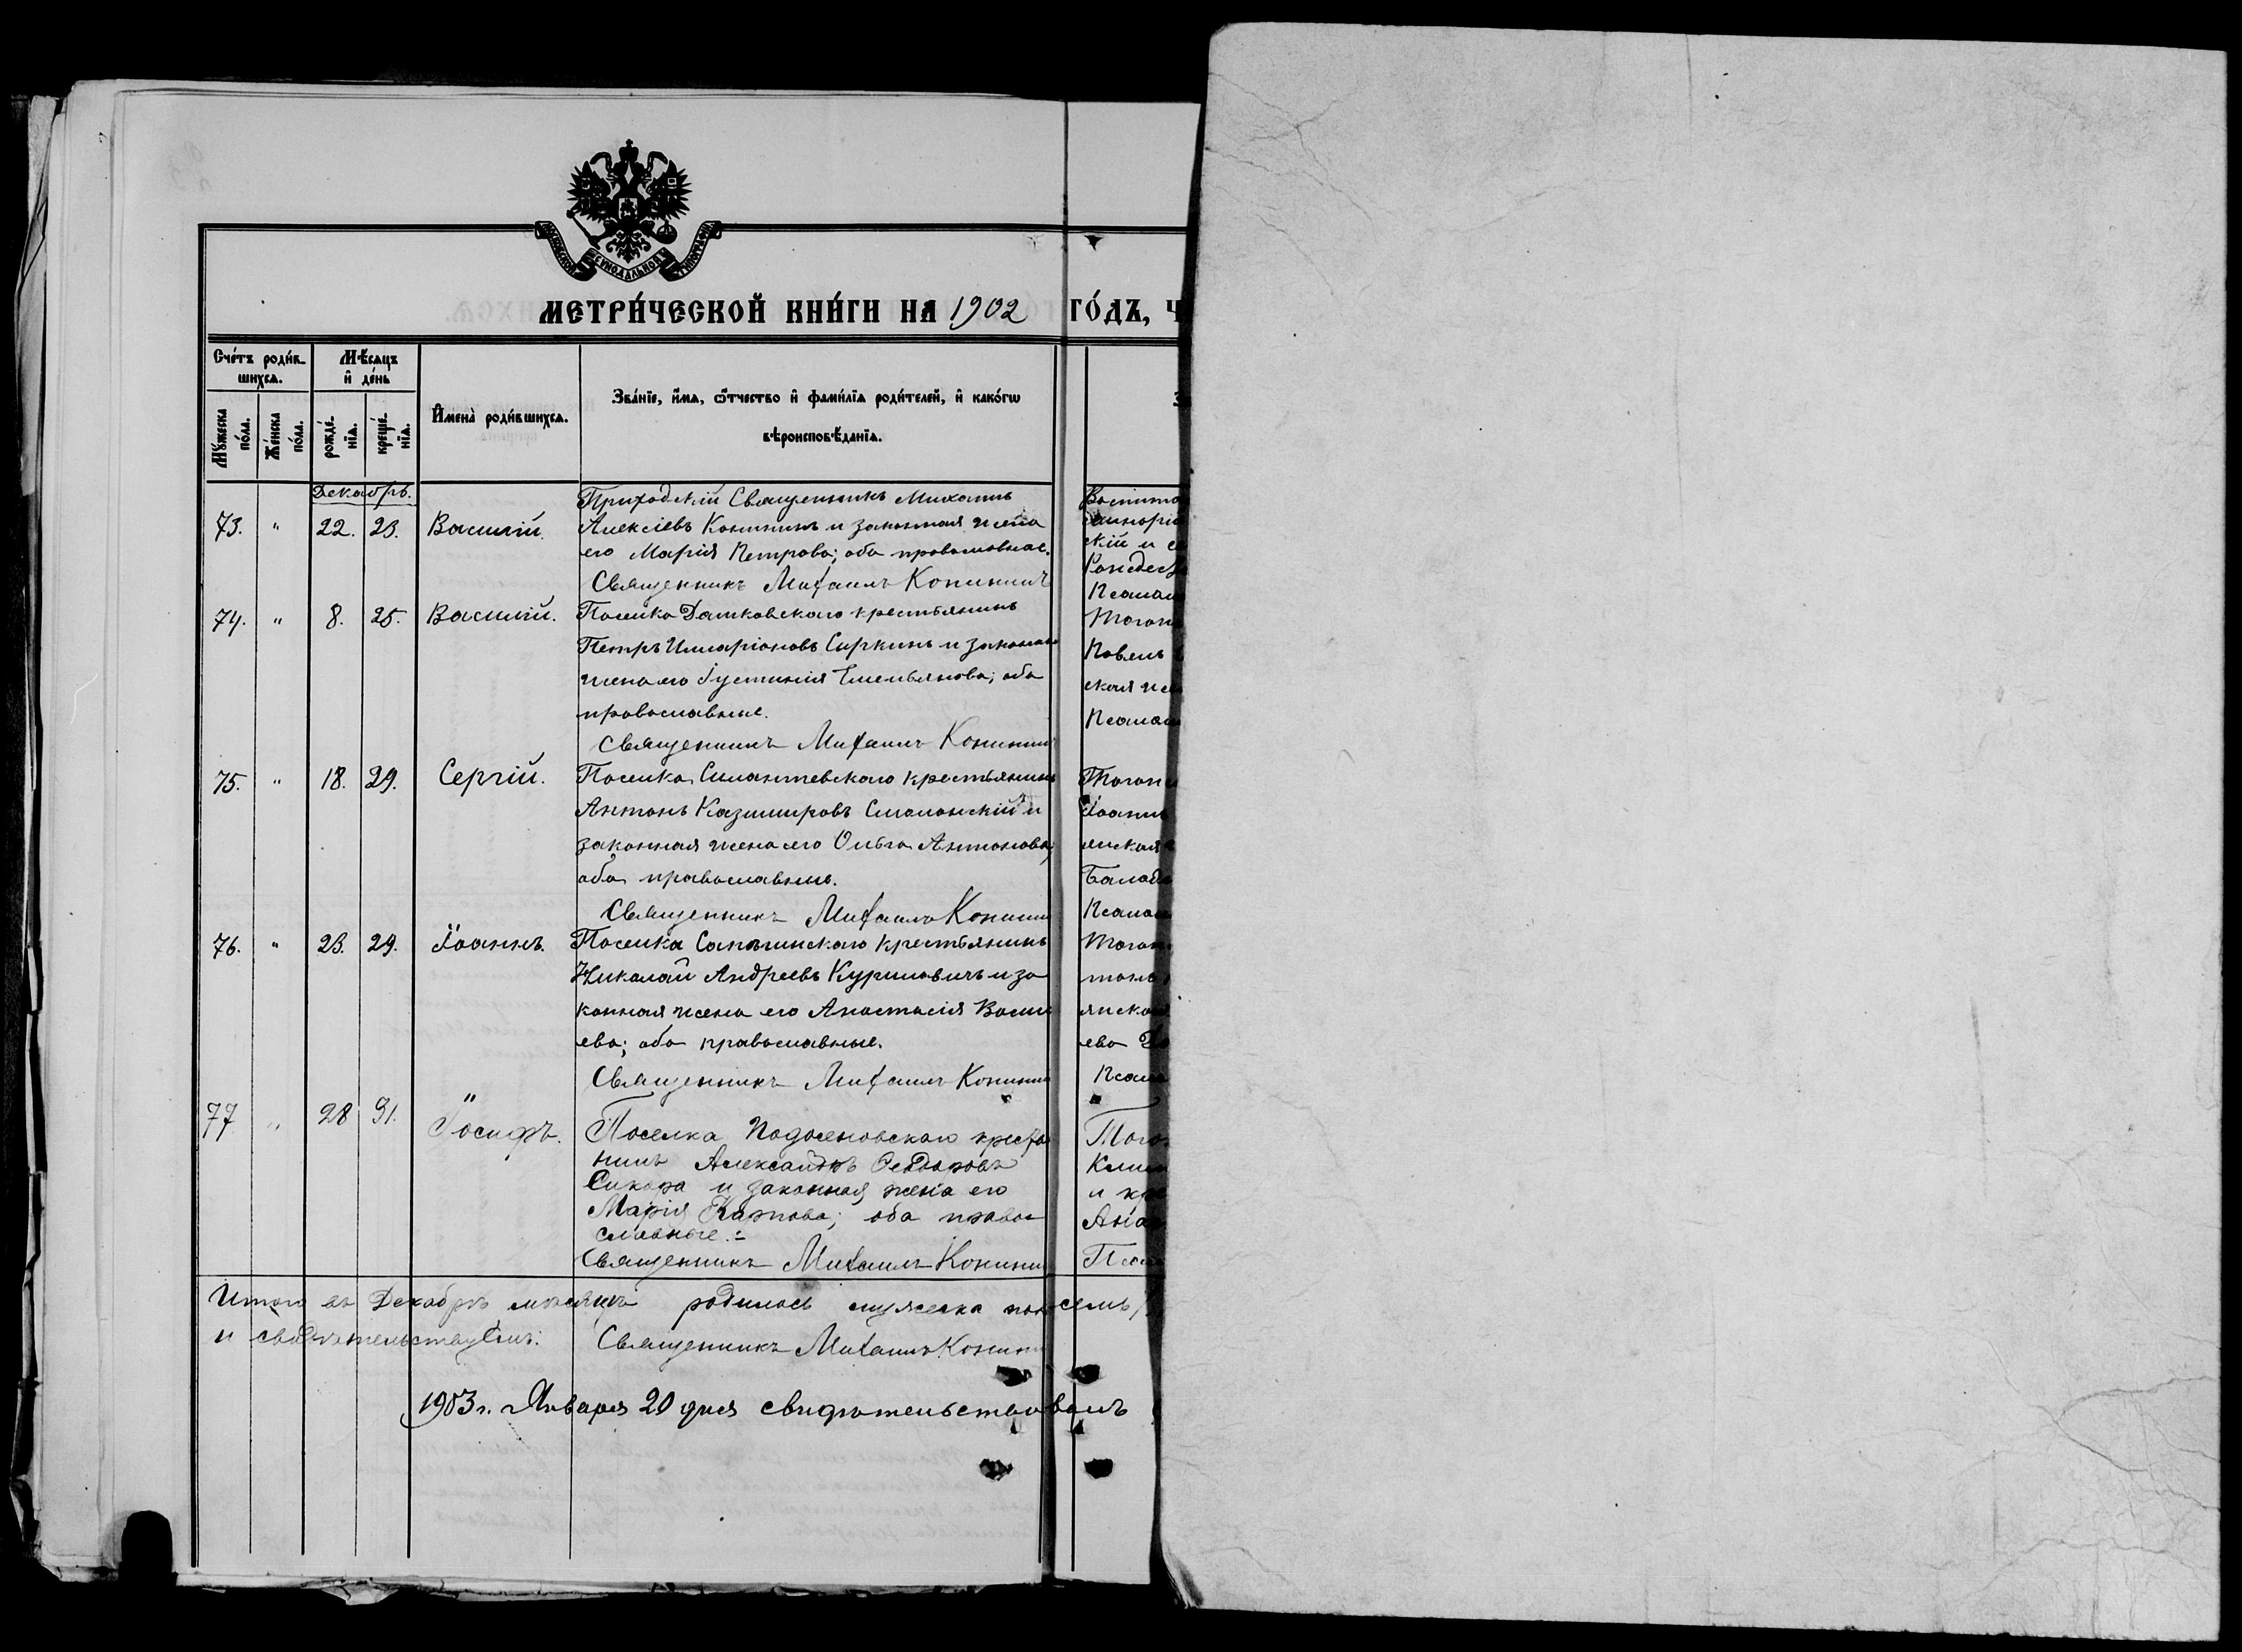 МОСКОВСКОЙ СУНОДАЛЬНОЙ ТИПОГРАФІИ
МЕТРИ́ЧЕСКОЙ КНИ́ГИ НА 1902 ГО́ДЪ, Ч
Счётъ роди́в-
шихся.
Мѣ́сяцъ
и де́нь
Мꙋ́жеска
по́ла.
Же́нска
по́ла.
рожде́-
нїя.
креще́-
нїя.
Имена̀ роди́вшихся.
Зва́нїе, и́мя, ѻ҆́тчество и фами́лїя роди́телей, и како́гѡ
вѣроисповѣ́данїя.
Декабрь.
73. " 22. 23. Василій.
Приходскій Священникъ Михаилъ
Алексіевъ Конинин и законная жена
его Марія Петрова; оба православные.
Священникъ Михаилъ Конинин
74. " 8. 25. Василій.
Поселка Датковскаго крестьянинъ
Петръ Иларіоновъ Сиркинъ и законная
жена его Іустинія Емельянова; оба
православные.
Священникъ Михаилъ Конинин
75. " 18. 29. Сергій.
Поселка Силантевскаго крестьянинъ
Антонъ Казимировъ Смолонскій и
законная жена его Ольга Антонова,
оба православные.
Священникъ Михаилъ Конинин
76. " 23. 29. Іоаннъ.
Поселка Сапегинскаго крестьянинъ
Николай Андреевъ Куриловичъ и за
конная жена его Анастасія Васил
ева; оба православные.
Священникъ Михаилъ Конинин
77 " 28 31. Іосифъ.
Поселка Подосеновскаго кресть
нинъ Александръ Ѳеодоровъ
Сикора и законная жена его
Марія Карпова; оба право
славные.
Священникъ Михаилъ Конинин
Итого въ Декабрѣ мѣсяцѣ родилось мужеска пола семь,
и свидѣтельствуемъ: Священникъ Михаилъ Конинин
1903 г. Января 20 дня свидѣтельствовалъ